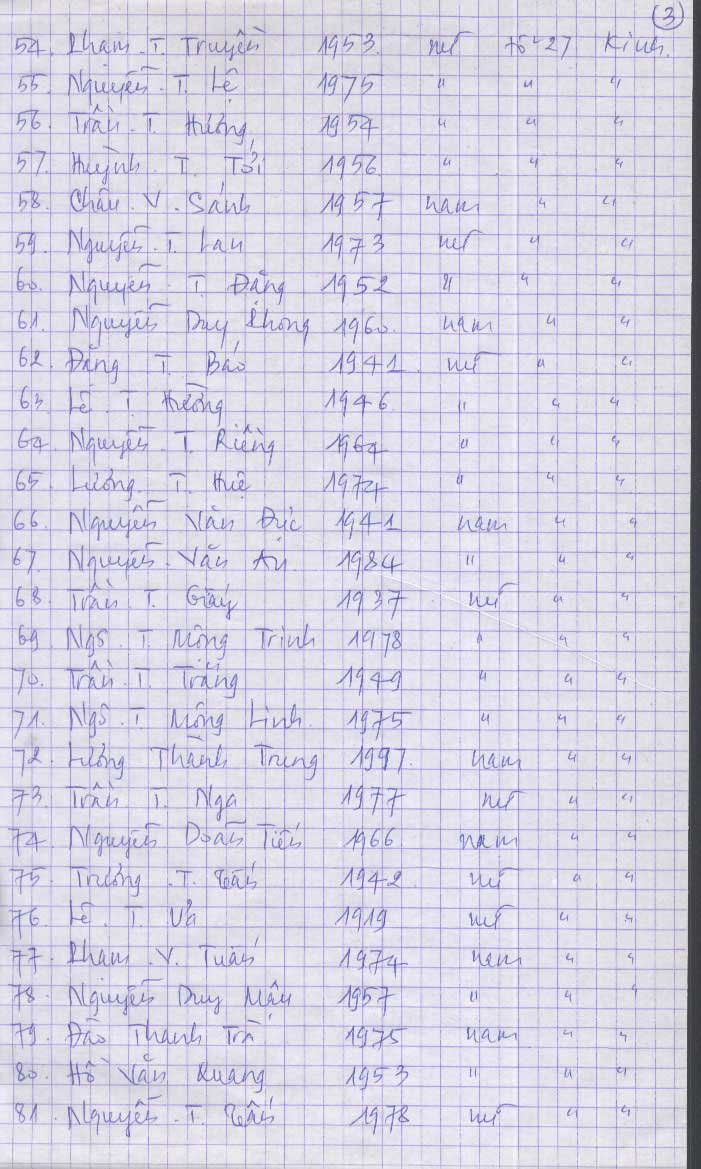 (3)
54. Phạm . T. Truyền 1953. nữ tổ 27 Kinh.
55. Nguyễn . T. Lê 1975 " " "
56. Trần . T Hường 1954 " " "
57. Huỳnh . T. Tới 1956 " " "
58. Châu . V . Sánh 1957 nam " "
59. Nguyễn . T. Lan 1973 nữ " "
60. Nguyễn . T. Đăng 1952 " " "
61. Nguyễn Duy Phong 1960. nam " "
62. Đặng T. Báo 1941. nữ " "
63. Lê . T. Hường 1946. " " "
64. Nguyễn . T. Riềng 1964 " " "
65. Lương. T. Huệ 1974 " " "
66. Nguyễn Văn Đức 1941 nam " "
67. Nguyễn . Văn An 1984 " " "
68. Trần . T. Giây 1937 nữ " "
69. Ngô . T. Mộng Trinh 1978 " " "
70. Trần . T. Trắng 1949 " " "
71. Ngô . T. Mộng Linh. 1975 " " "
72. Lương Thành Trung 1997. nam " "
73. Trần T. Nga 1977 nữ " "
74. Nguyễn Doãn Tiến 1966. nam " "
75. Trương . T. 1942. nữ " "
76. Lê . T. 1919 nữ " "
77. Phạm . V. Tuấn 1974 nam " "
78. Nguyễn Duy Mậu 1957 " " "
79. Đào Thanh Trà 1975 nam " "
80. Hồ Văn Quang 1953 " " "
81. Nguyễn . T. 1978 nữ " "